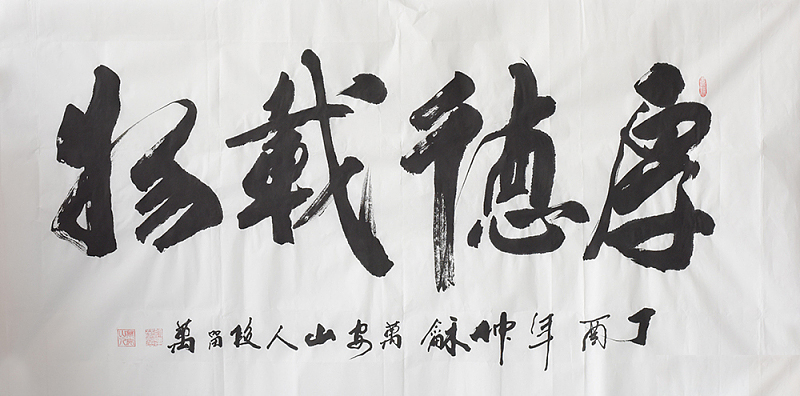 厚德載物
丁酉年仲萬安山人段留萬